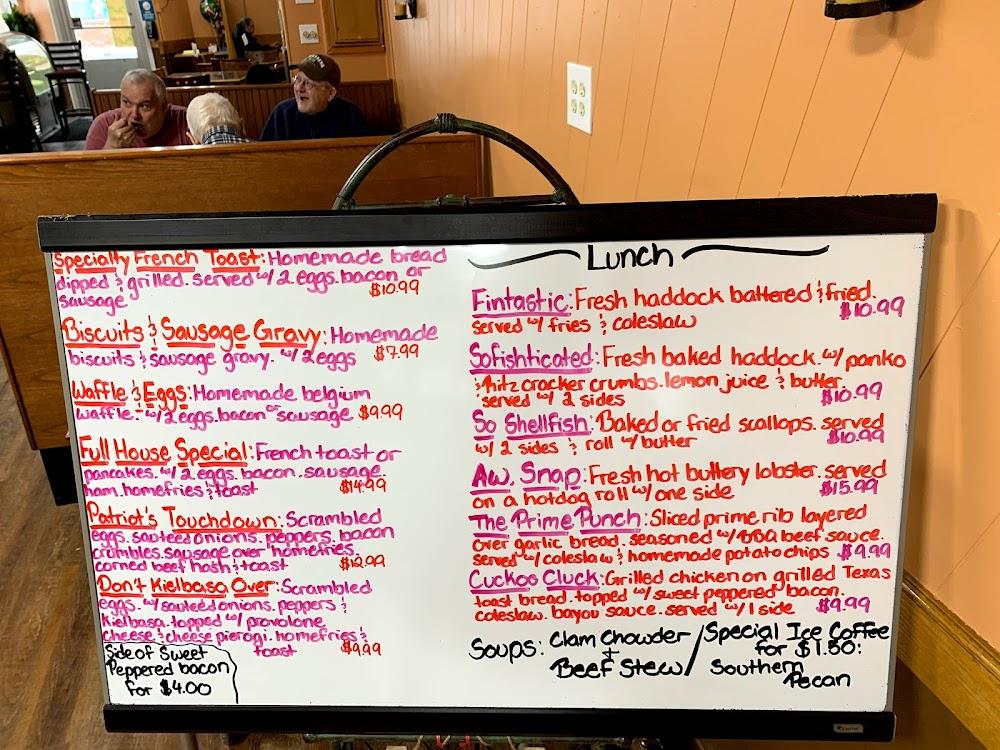 Specialty French Toast: Homemade bread
dipped & grilled. served w/ 2 eggs. bacon or
sausage $10.99
Biscuits & Sausage Gravy: Homemade
biscuits & sausage gravy. w/ 2 eggs $7.99
Waffle & Eggs: Homemade belgium
waffle. w/ 2 eggs. bacon or sausage $9.99
Full House Special: French toast or
pancakes. w/ 2 eggs. bacon. sausage.
ham. homefries & toast $14.99
Patriot's Touchdown: Scrambled
eggs. sauteed onions. peppers. bacon
crumbles. sausage over homefries
corned beef hash & toast $12.99
Don't Kielbasa Over: Scrambled
eggs. w/ sauteed onions. peppers &
kielbasa. topped w/ provolone
cheese & cheese pierogi. homefries &
toast $9.99
Side of Sweet
Peppered bacon
for $4.00
Lunch
Fintastic: Fresh haddock battered & fried.
served w/ fries & coleslaw $10.99
Sofishticated: Fresh baked haddock. w/ panko
& ritz cracker crumbs. lemon juice & butter.
served w/ 2 sides $10.99
So Shellfish: Baked or fried scallops. served
w/ 2 sides & roll w/ butter $10.99
Aw, Snap: Fresh hot buttery lobster. served
on a hotdog roll w/ one side $15.99
The Prime Punch: Sliced prime rib layered
over garlic bread. seasoned w/ BBQ beef sauce.
served w/ coleslaw & homemade potato chips $9.99
Cuckoo Cluck: Grilled chicken on grilled Texas
toast bread. topped w/ sweet peppered bacon.
coleslaw. bayou sauce. served w/ 1 side $9.99
Soups: Clam Chowder
+
Beef Stew /
Special Ice Coffee
for $1.50:
Southern
Pecan